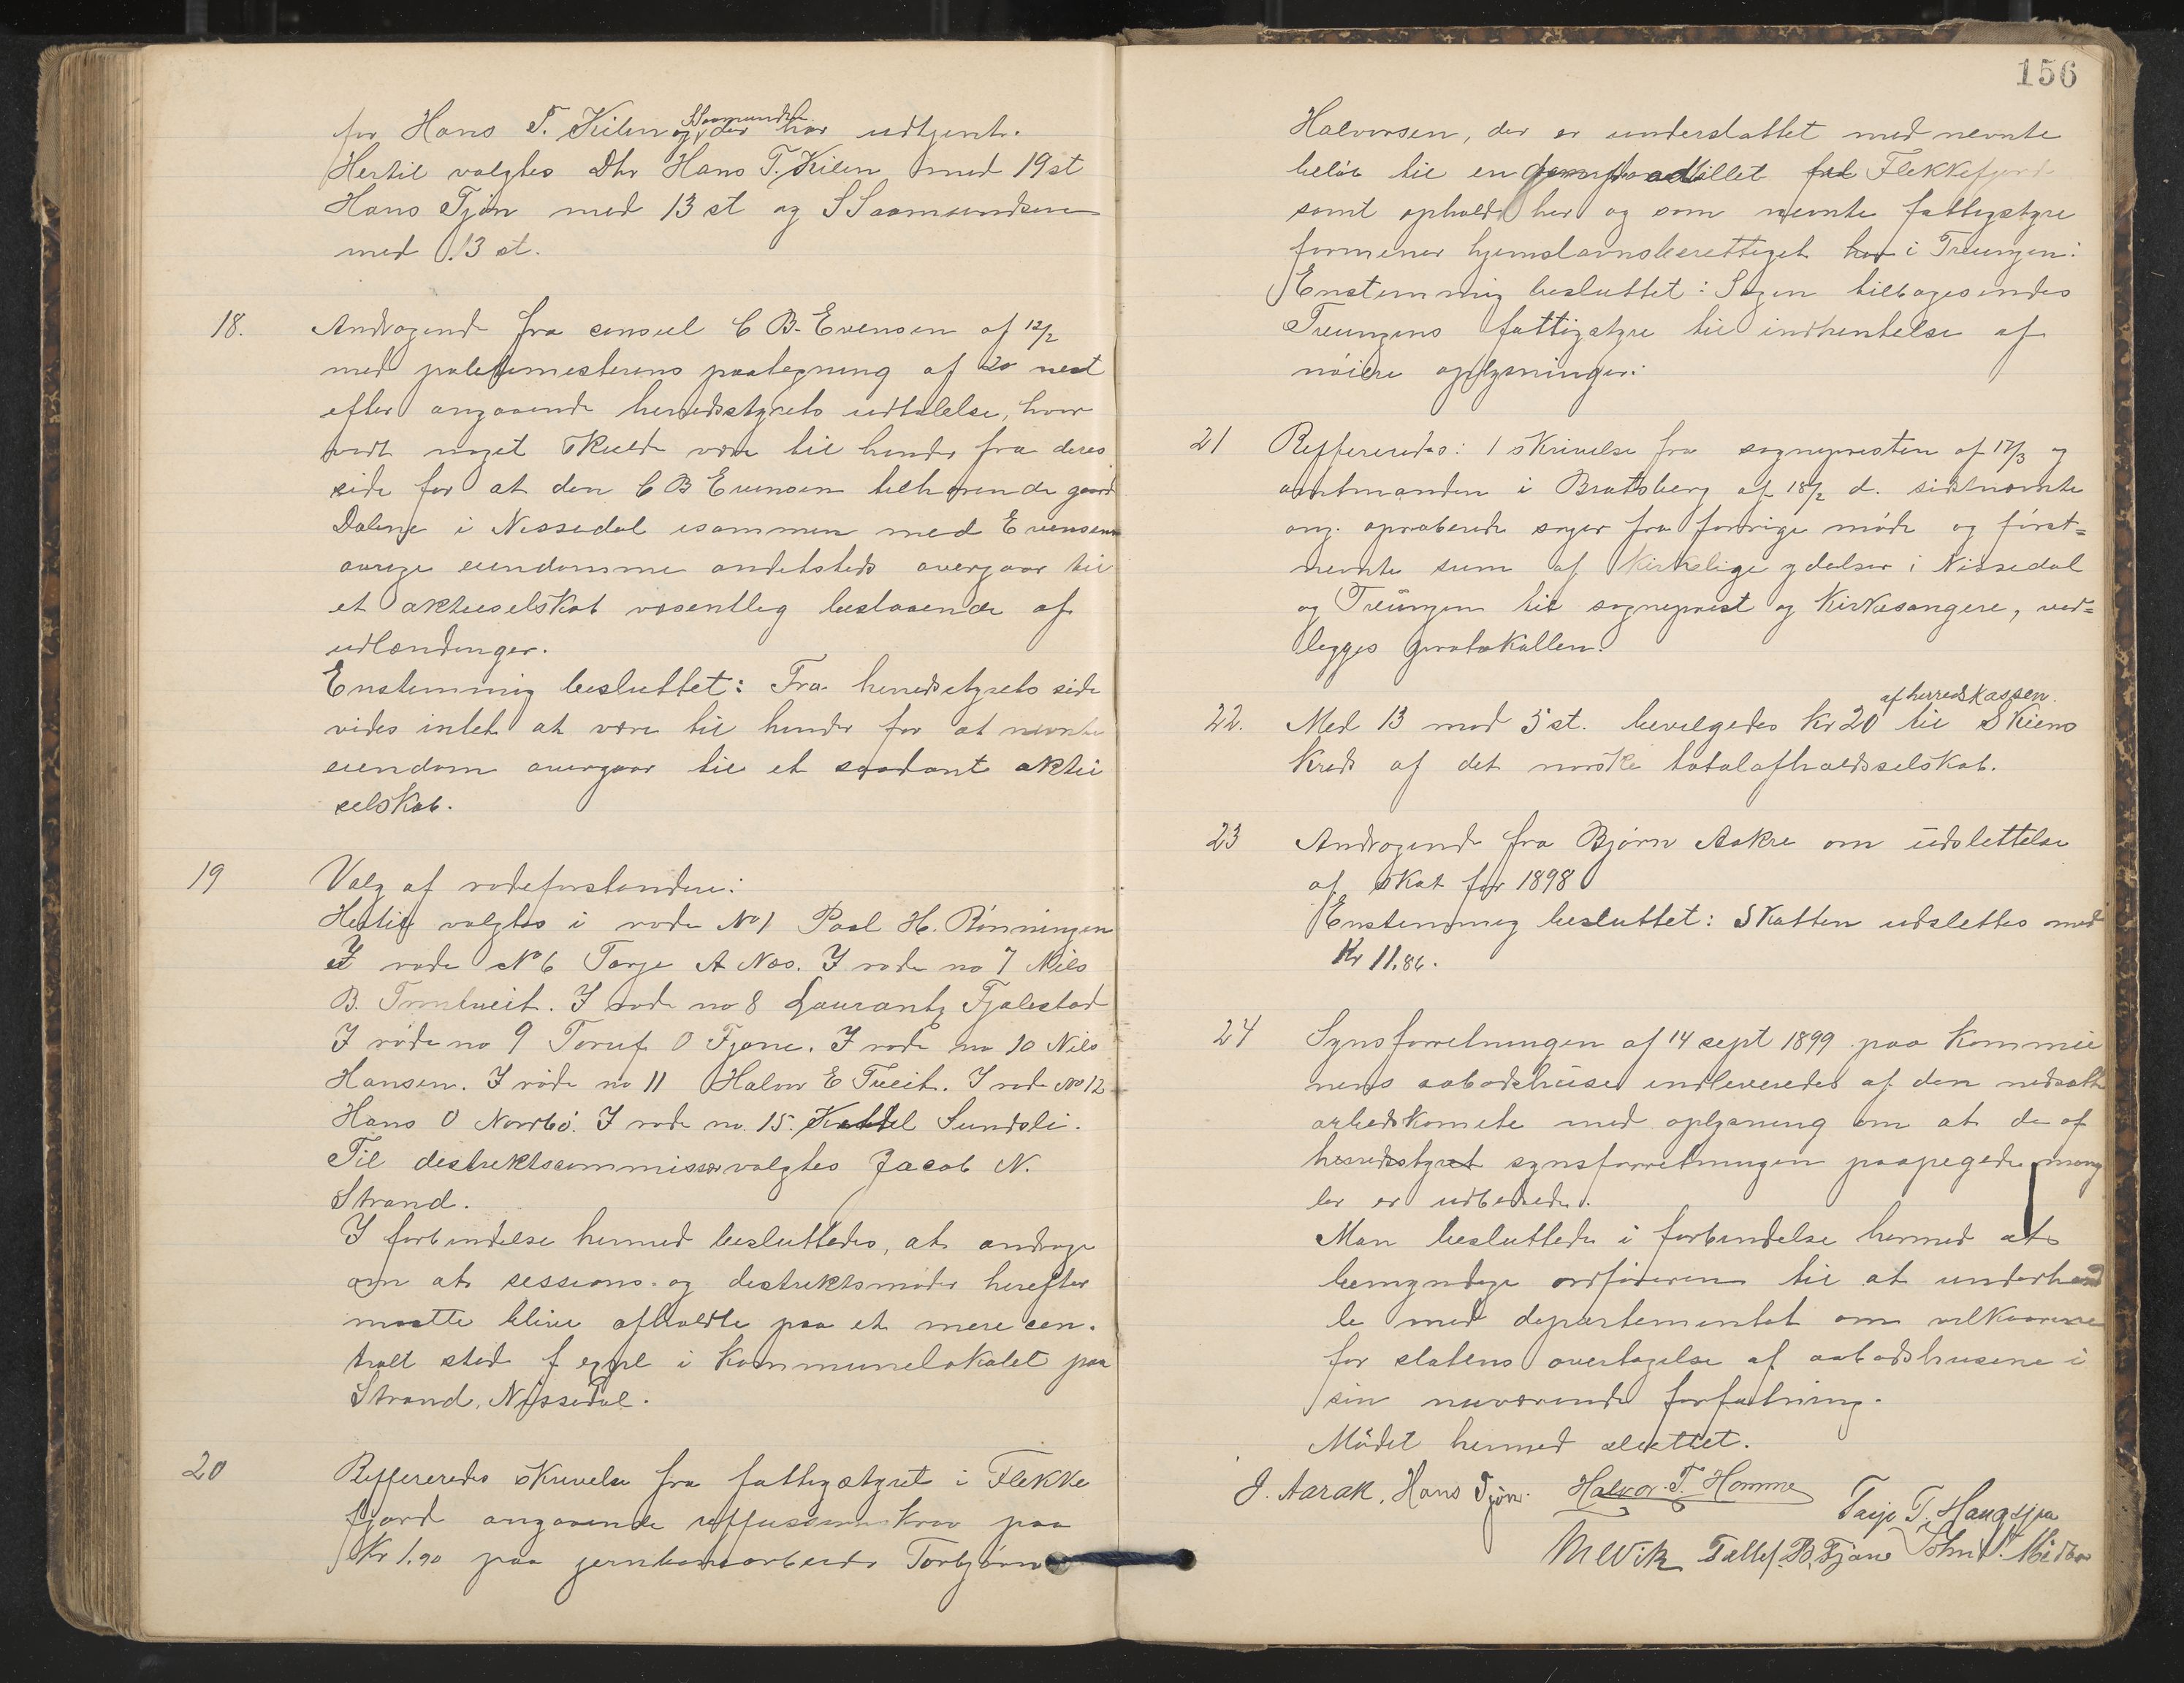 for Hans T. Kilen og S Saamundsen der har udtjent.
Hertil valgtes Dhr Hans T. Kilen med 19 st
Hans Tjøn med 13 st og S Saamundsen
med 13 st.
18. Andragende fra consul C B. Evensen af 12/2
med politimesterens paategning af 20 nest
efter angaaende herredsstyrets udtalelse, hvor
vidt noget skulde være til hinder fra deres
side for at den C B Evensen tilhørende gaard
Dalene i Nissedal isammen med Evensens
øvrige eiendomme andetsteds overgaar til
et aktieselskab væsentlig bestaaende af
udlændinger.
Enstemmig besluttet: Fra herredsstyrets side
vides intet at være til hinder for at nevnte
eiendom overgaar til et saadant aktie
selskab.
19 Valg af rodeforstandere:
Hertil valgtes i rode No 1 Paal H. Rönningen
I rode No 6 Tarje A Næs. I rode no 7 Nils
B. Tveit. I rode no 8 Laurantz Fjalestad
I rode no 9 Toruf O Fjone. I rode no 10 Nils
Hansen. I rode no 11 Halvor E Tveit. I rode No 12
Hans O Nordbö. I rode no. 15. Kettel Sundsli.
Til destriktscommissær valgtes Jacob N.
Strand.
I forbindelse hermed besluttedes, at andrage
om at sessions- og destriktsmøder herefter
maatte blive afholdte paa et mere cen-
tralt sted f expl i Kommunelokalet paa
Strand, Nissedal.
20 Reffereredes skrivelse fra fattigstyret i Flekke
fjord angaaende reffusionskrav paa
Kr 1,90 paa jernbanearbeider Torbjørn
156
Halvorsen, der er understøttet med nevnte
beløb til en til Flekkefjord
samt ophold her og som nevnte fattigstyre
formener hjemstavnsberettiget her i Treungen:
Enstemmig besluttet: Sagen tilbagesendes
Treungens fattigstyre til indhentelse af
nöiere oplysninger:
21 Reffereredes: 1 skrivelse fra sognepresten af 17/3 og
amtmanden i Bratsberg af 18/2 d. sidstnævnte
ang. aprobered sager fra forrige möde og först=
nevnte sum af Kirkelige ydelser i Nissedal
og Treungen til sogneprest og Kirkesangere, ved=
legges protokollen.
22. Med 13 mod 5 st. bevilgedes kr 20 af herredskassen til Skiens
Kreds af det norske totalafholdsselskab.
23 Andragende fra Bjørn Aakre om udslettelse
af skat for 1898
Enstemmig besluttet: Skatten udslettes med
Kr 11.86.
24 Synsforretningen af 14 sept 1899 paa Kommu
nens aabodshuse indleveredes af den nedsatte
arbeidskomite med oplysning om at de af
herredsstyret synsforretningen paapegede mang
ler er udbedrede.
Man besluttede i forbindelse hermed at
bemyndige ordföreren til at underhand
le med departementet om vilkaarene
for statens overtagelse af aabodshusene i
sin nuværende forfatning.
Mödet hermed sluttet.
J. Aarak. Hans Tjön. Halvor T. Homme Tarje T. Haugsjaa
M Wik Tellef. B. Fjone John T. Midbø